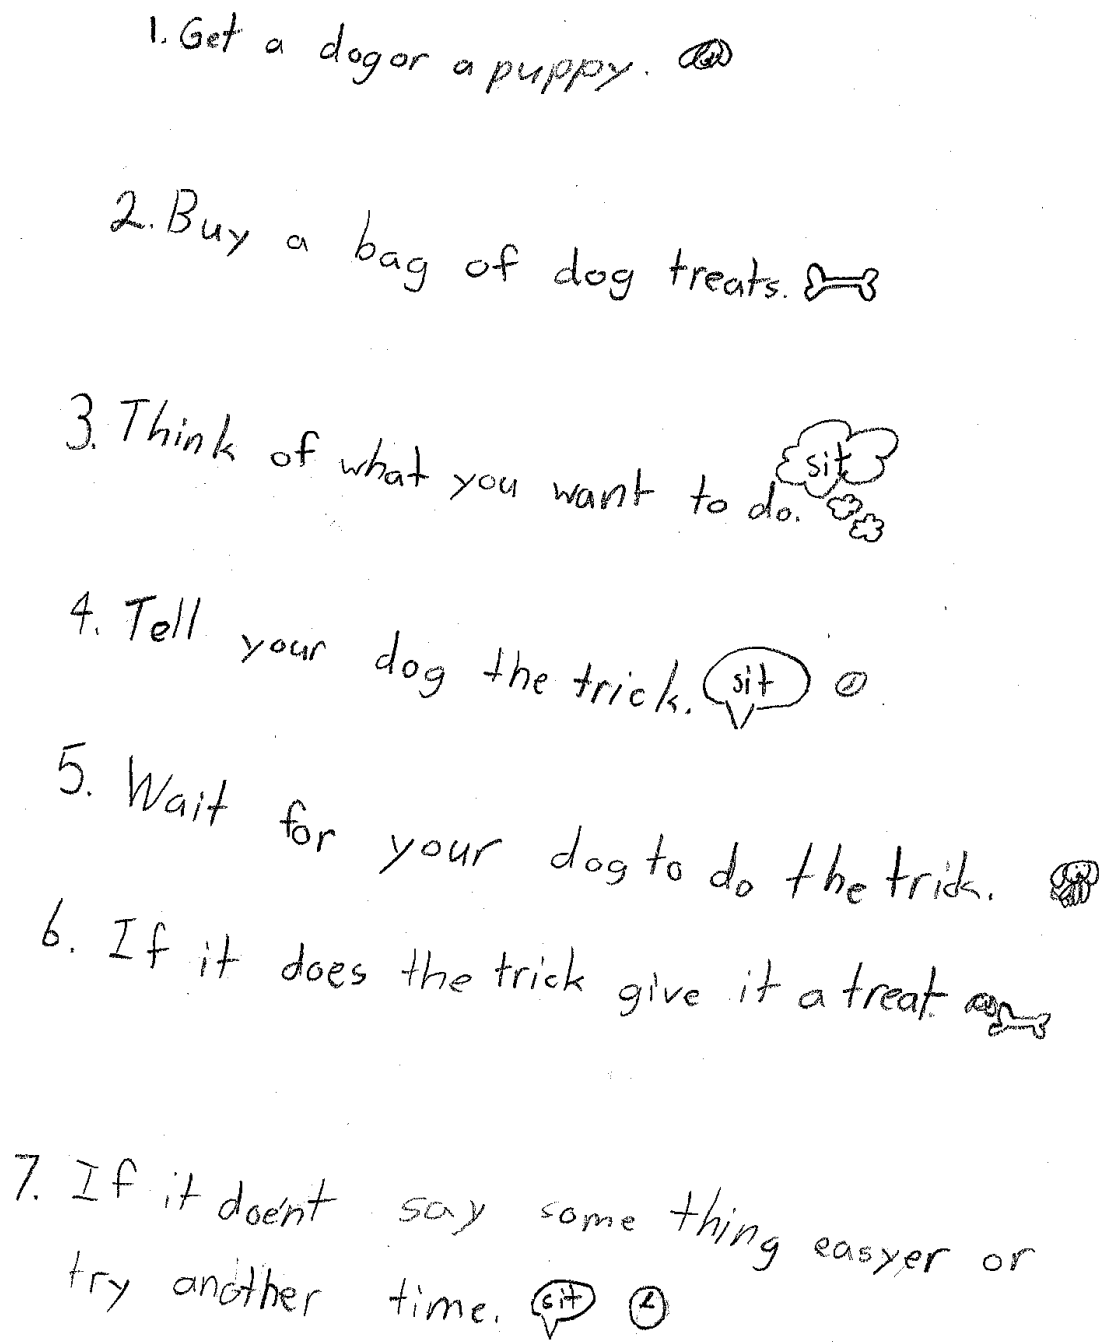 1. Get a dog or a puppy.
2. Buy a bag of dog treats.
3. Think of what you want to do. sit
4. Tell your dog the trick. sit
5. Wait for your dog to do the trick.
6. If it does the trick give it a treat.
7. If it doen't say some thing easyer or
try another time. sit